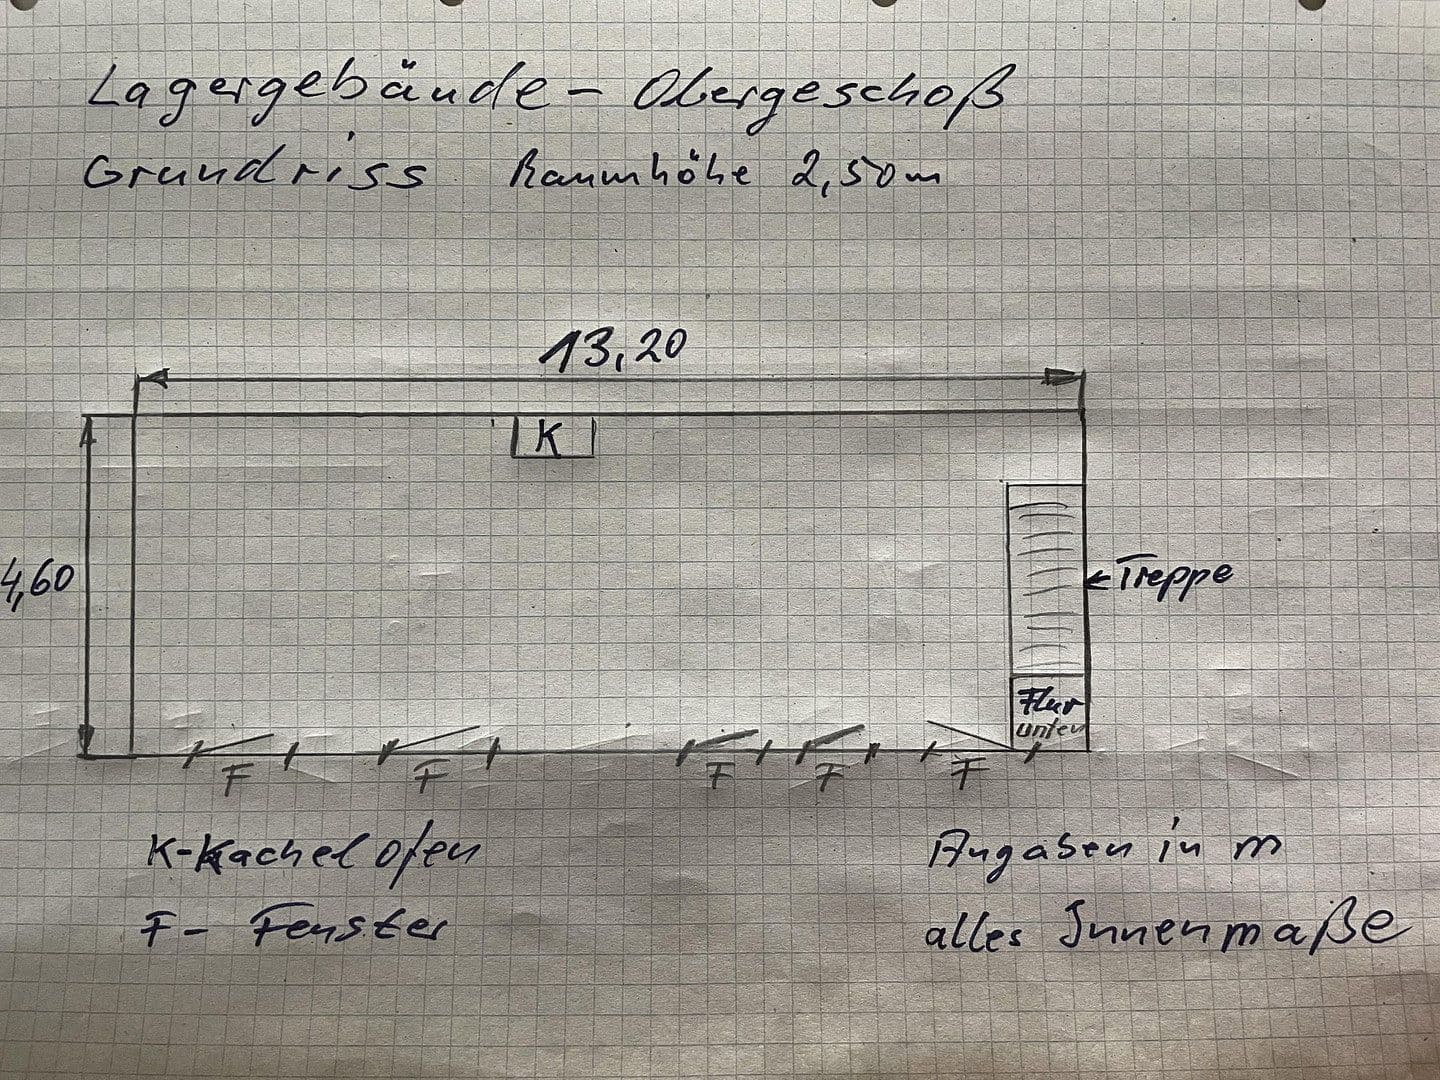 Lagergebäude - Obergeschoß
Grundriss Raumhöhe 2,50m
13,20
K
4,60
Treppe
Flur
unten
F F F F F
K-Kachelofen
F- Fenster
Angaben in m
alles Innenmaße